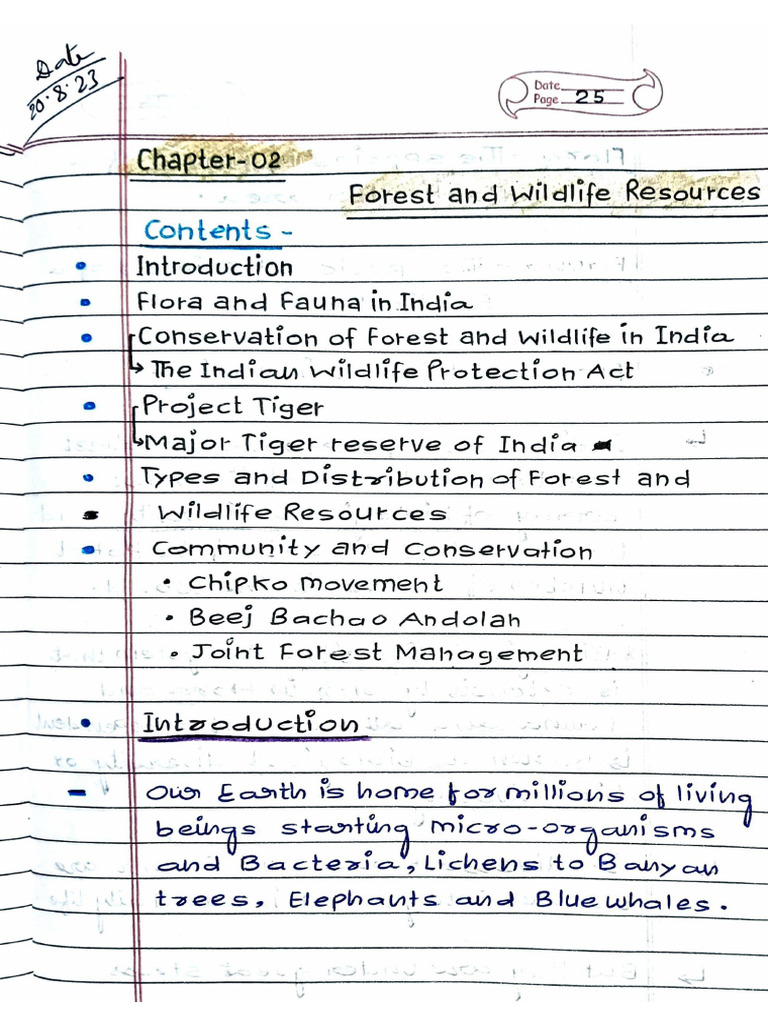 Date
20.8.23
Date
Page 25
Chapter-02
Forest and Wildlife Resources
Contents -
• Introduction
• Flora and Fauna in India
• Conservation of Forest and Wildlife in India
↳ The Indian Wildlife Protection Act
• Project Tiger
↳ Major Tiger reserve of India
• Types and Distribution of Forest and
Wildlife Resources
• Community and Conservation
• Chipko Movement
• Beej Bachao Andolan
• Joint Forest Management
• Introduction
- Our Earth is home for millions of living
beings starting micro-organisms
and Bacteria, Lichens to Banyan
trees, Elephants and Blue whales.